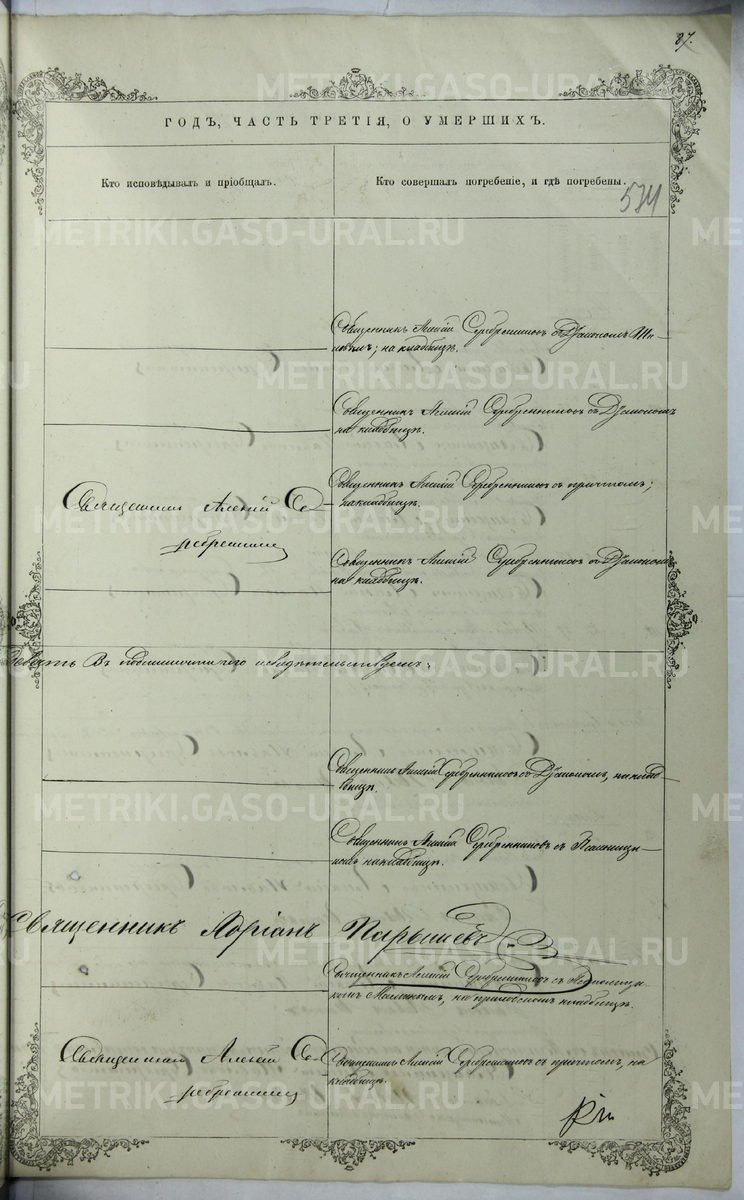 87.
ГОДЪ, ЧАСТЬ ТРЕТІЯ, О УМЕРШИХЪ.
Кто исповѣдывалъ и пріобщалъ.
Кто совершалъ погребеніе, и гдѣ погребены.
574
Священникъ Алексій Серебренниковъ съ Діакономъ
на кладбищѣ.
Священникъ Алексій Серебренниковъ съ Діакономъ
на кладбищѣ.
Священникъ Алексій Се-
ребренниковъ
Священникъ Алексій Серебренниковъ съ причтомъ;
на кладбищѣ.
Священникъ Алексій Серебренниковъ съ Діакономъ
на кладбищѣ.
девять Въ подлинности чего свидѣтельствуемъ:
Священникъ Алексій Серебренниковъ съ Діакономъ, на клад-
бищѣ.
Священникъ Алексій Серебренниковъ съ Псаломщи-
комъ на кладбищѣ.
Священникъ Адріанъ Парышевъ
Священникъ Алексій Серебренниковъ съ Псаломщи-
комъ на приходскомъ кладбищѣ.
Священникъ Алексій Се-
ребренниковъ
Священникъ Алексій Серебренниковъ съ причтомъ, на
кладбищѣ.
METRIKI.GASO-URAL.RU